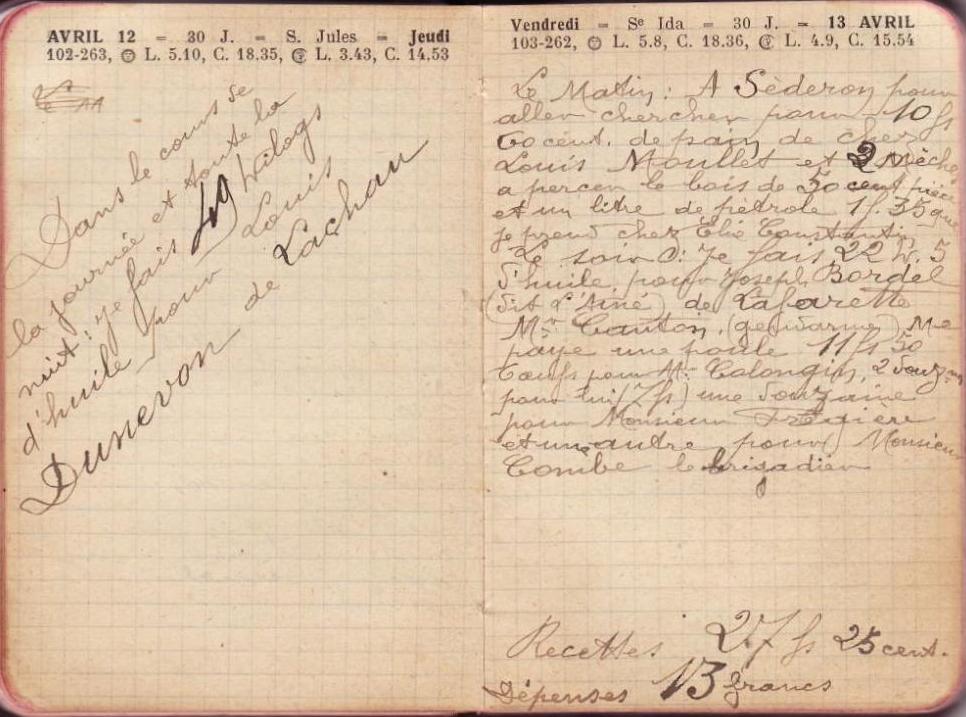 AVRIL 12 = 30 J. = S. Jules = Jeudi
102-263, L. 5.10, C. 18.35, L. 3.43, C. 14.53
Dans le cours de
la journée et toute la
nuit : je fais 49 kilogs
d'huile pour Louis
Dunevon de Lachau
Vendredi = Se Ida = 30 J. = 13 AVRIL
103-262, L. 5.8, C. 18.36, L. 4.9, C. 15.54
Le Matin : A Sèderon pour
aller chercher pour 10 fs
60 cent. de pain de chez
Louis Moullet et 2 mèches
a percer le bois de 50 cent pièce
et un litre de pètrole 1f. 35 que
je prend chez Elie Constantin
Le soir : Je fais 22 k. 5
d'huile pour Joseph Bordel
(dit L'Ainé) de Lafarette
Mr Canton, (gendarme) Me
paye une poule 11 fs 50
œufs pour Mr Calongin, 2 douz
pour lui (7 fs) une douzaine
pour Monsieur
et une autre pour Monsieur
Combe le brigadier
Recettes 27 fs 25 cent.
Dépenses 13 francs